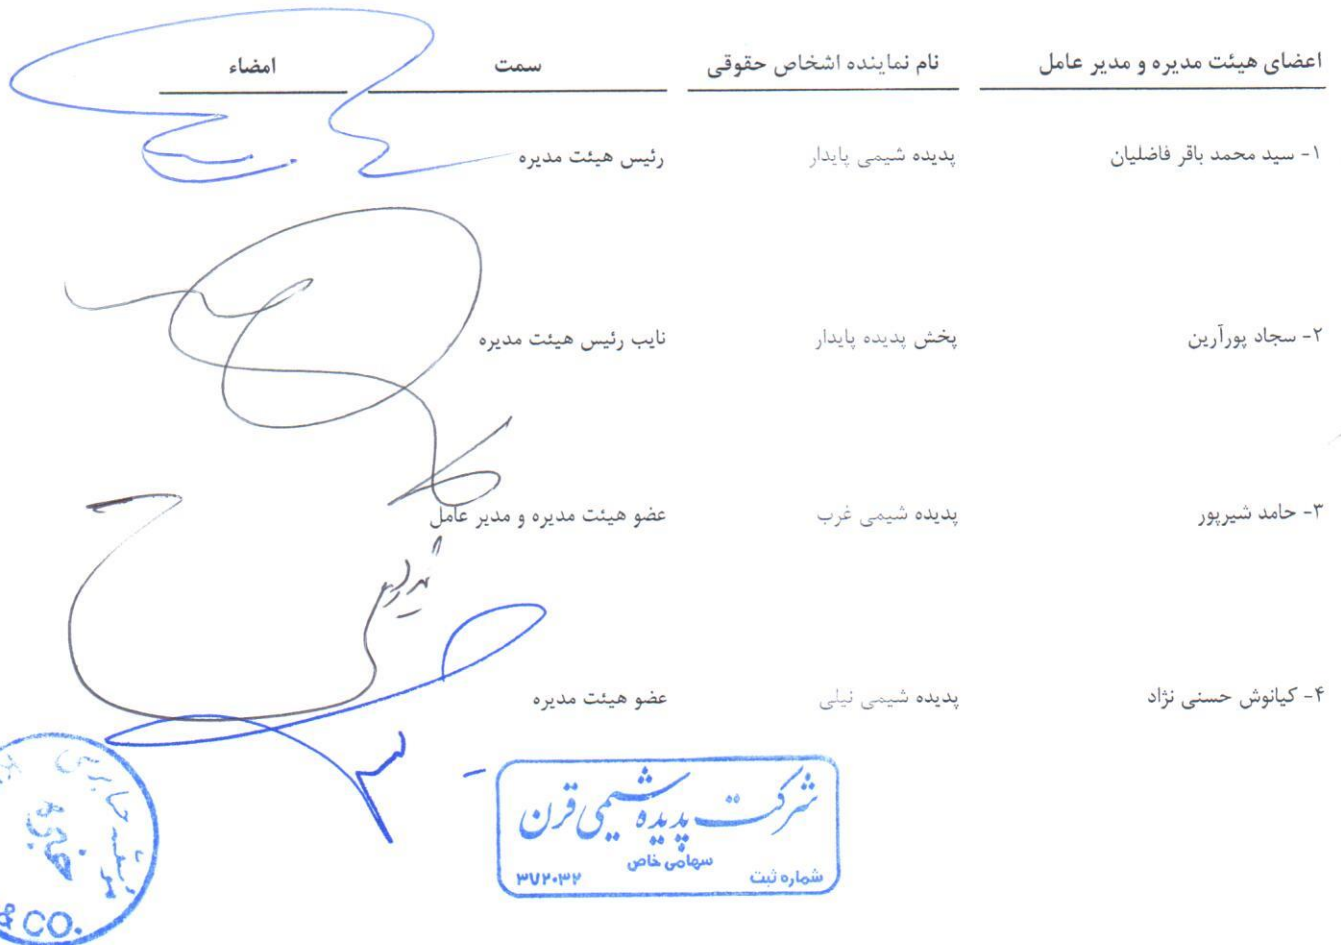 اعضای هیئت مدیره و مدیر عامل نام نماینده اشخاص حقوقی سمت امضاء
۱- سید محمد باقر فاضلیان پدیده شیمی پایدار رئیس هیئت مدیره
۲- سجاد پورآرین پخش پدیده پایدار نایب رئیس هیئت مدیره
۳- حامد شیرپور پدیده شیمی غرب عضو هیئت مدیره و مدیر عامل
۴- کیانوش حسنی نژاد پدیده شیمی نیلی عضو هیئت مدیره
شرکت پدیده شیمی قرن
سهامی خاص
شماره ثبت ۳۷۲۰۳۲
& CO.